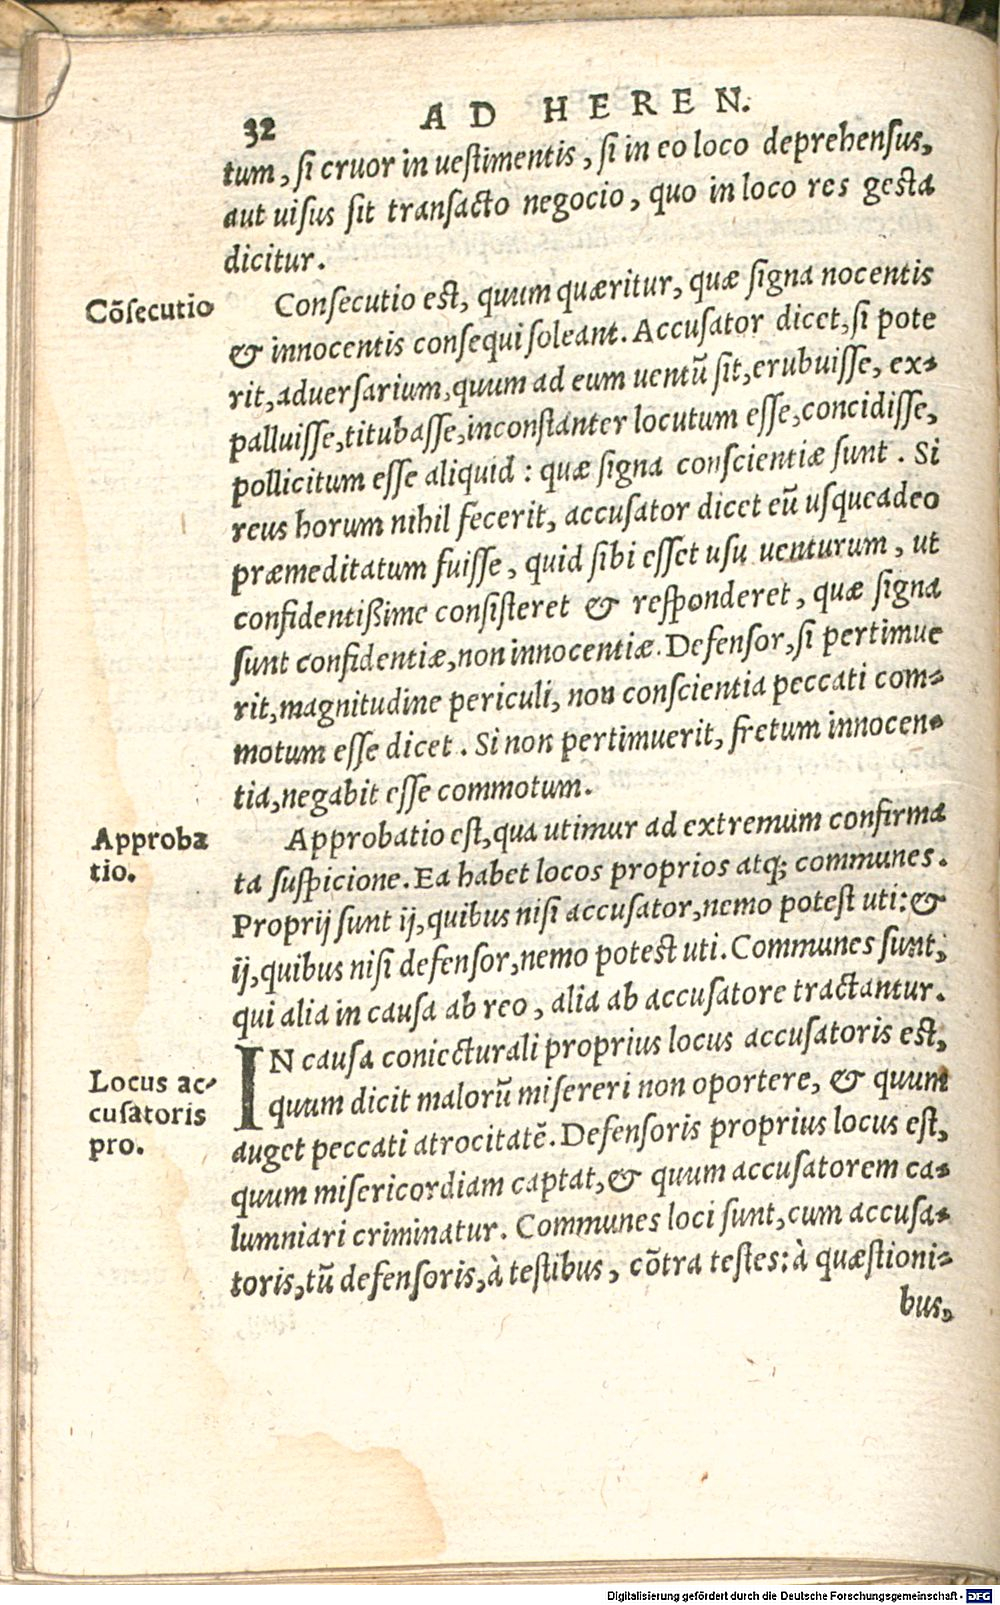 32 AD HEREN.
tum, si cruor in uestimentis, si in eo loco deprehensus,
aut uisus sit transacto negocio, quo in loco res gesta
dicitur.
Cõsecutio
Consecutio est, quum quæritur, quæ signa nocentis
& innocentis consequi soleant. Accusator dicet, si pote
rit, aduersarium, quum ad eum uentũ sit, erubuisse, ex-
palluisse, titubasse, inconstanter locutum esse, concidisse,
pollicitum esse aliquid: quæ signa conscientiæ sunt. Si
reus horum nihil fecerit, accusator dicet eũ usqueadeo
præmeditatum fuisse, quid sibi esset usu uenturum, ut
confidentißime consisteret & responderet, quæ signa
sunt confidentiæ, non innocentiæ. Defensor, si pertimue
rit, magnitudine periculi, non conscientia peccati com-
motum esse dicet. Si non pertimuerit, fretum innocen-
tia, negabit esse commotum.
Approba
tio.
Approbatio est, qua utimur ad extremum confirma
ta suspicione. Ea habet locos proprios atq; communes.
Proprij sunt ij, quibus nisi accusator, nemo potest uti: &
ij, quibus nisi defensor, nemo potest uti. Communes sunt,
qui alia in causa ab reo, alia ab accusatore tractantur.
Locus ac-
cusatoris
pro.
IN causa coniecturali proprius locus accusatoris est,
quum dicit malorũ misereri non oportere, & quum
auget peccati atrocitatẽ. Defensoris proprius locus est,
quum misericordiam captat, & quum accusatorem ca-
lumniari criminatur. Communes loci sunt, cum accusa-
toris, tũ defensoris, à testibus, cõtra testes: à quæstioni-
bus,
Digitalisierung gefördert durch die Deutsche Forschungsgemeinschaft - DFG